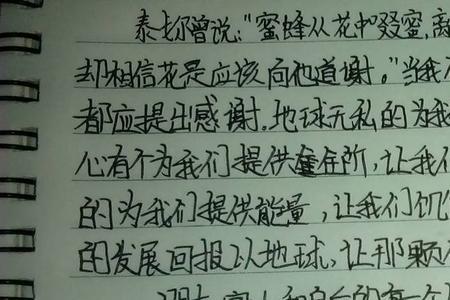 泰戈尔曾说:"蜜蜂从花中叹蜜,离
却相信花是应该向他道谢。"当我
都应提出感谢.地球无私的为我
心有个为我们提供住所,让我们
的为我们提供能量,让我们饥
的发展回报以地球,让那颗